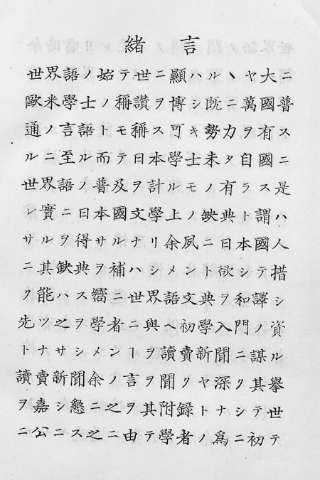 緒言
世界語ノ始テ世ニ顯ハルヽヤ大ニ
歐米學士ノ稱讚ヲ博シ既ニ萬國普
通ノ言語トモ稱ス可キ勢力ヲ有ス
ルニ至ル而テ日本學士未タ自國ニ
世界語ノ普及ヲ計ルモノ有ラス是
レ實ニ日本國文學上ノ缺典ト謂ハ
サルヲ得サルナリ余夙ニ日本國人
ニ其缺典ヲ補ハシメント欲シテ措
ク能ハス嚮ニ世界語文典ヲ和譯シ
先ツ之ヲ學者ニ與ヘ初學入門ノ資
トナサシメントヲ讀賣新聞ニ謀ル
讀賣新聞余ノ言ヲ聞クヤ深ク其擧
ヲ嘉シ懇ニ之ヲ其附録トナシテ世
ニ公ニス之ニ由テ學者ノ爲ニ初テ